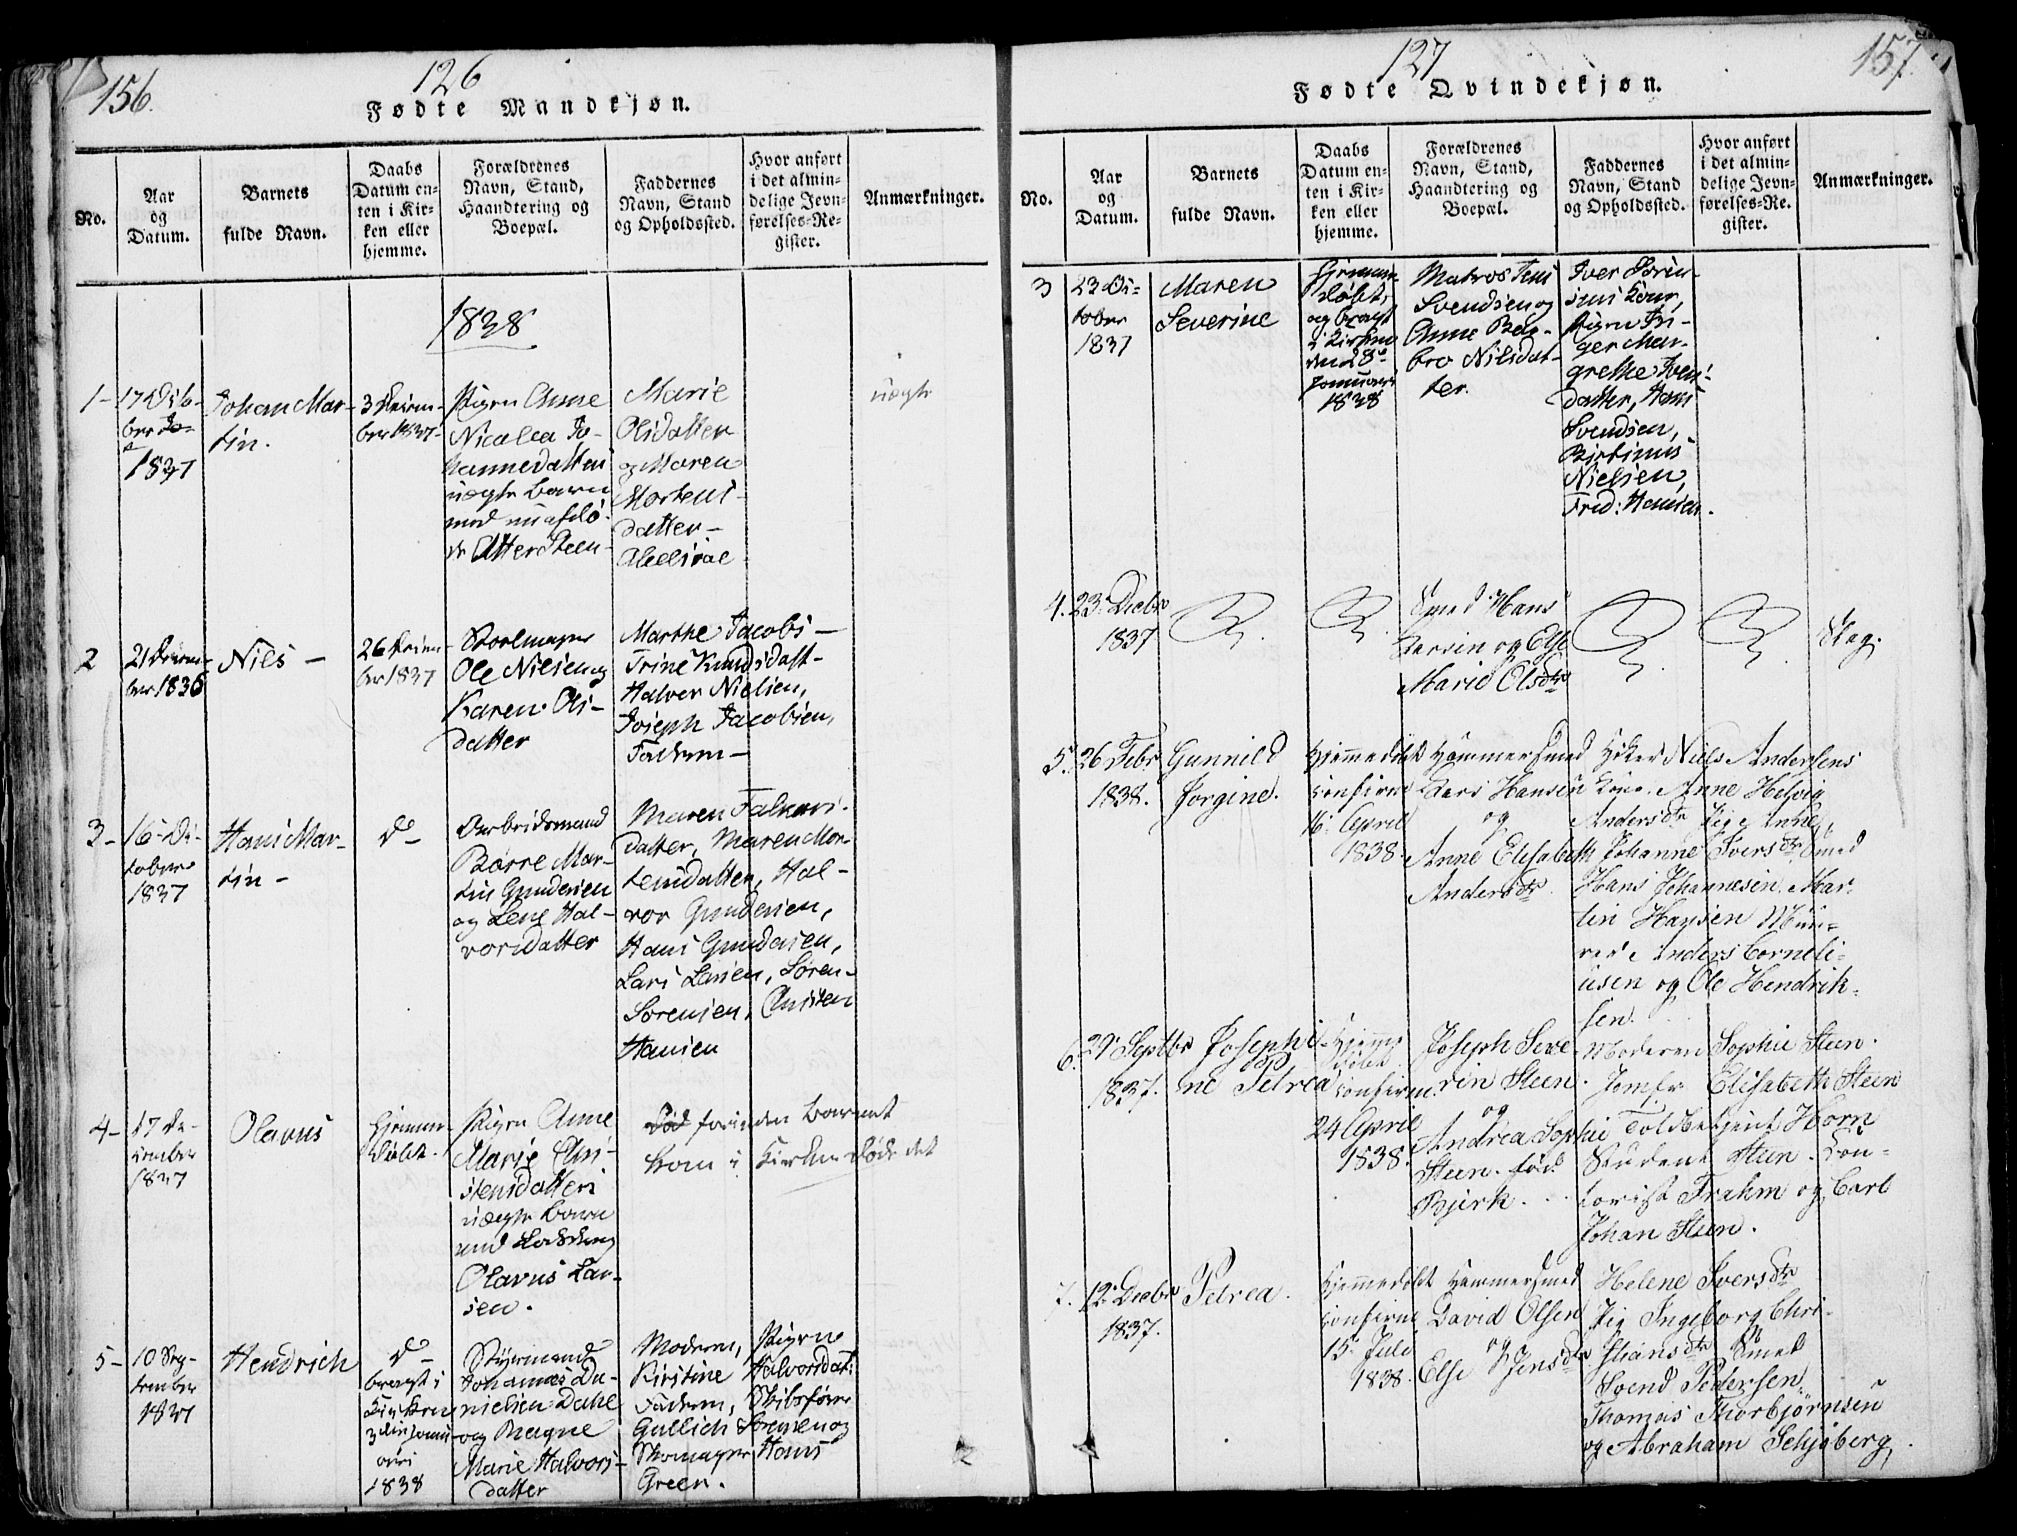 156.
126
Fødte Mandkjøn.
No.
Aar
og
Datum.
Barnets
fulde Navn.
Daabs
Datum en-
ten i Kir-
ken eller
hjemme.
Forældrenes
Navn, Stand,
Haandtering og
Boepæl.
Faddernes
Navn, Stand
og Opholdssted.
Hvor anført
i det almin-
delige Jevn-
førelses-Re-
gister.
Anmærkninger.
1838
1-
1837
Johan Mar-
tin.
3 Decem-
ber 1837-
Pigen Anne
Nicolea Jo-
hannedatters
uægte Barn
Marie
Olsdatter
og Maren
Mortens-
datter-
uægte
2
21 Decem-
ber 1836
Nils -
26 Decem-
ber 1837
Ole Nilsen og
Karen Ols-
datter
Marthe Jacobs-
Trine Knudsdatt-
Halver Nielsen,
Joseph Jacobsen,
Faderen-
3-
16 Oc-
tober
1837
Hans Mar-
tin -
do-
Arbeidsmand
Børre Mar-
tin Gundersen
og Lene Hal-
vorsdatter
Maren Falkers-
datter, Maren Mor-
tensdatter, Hal-
vor Gundersen,
Hans Gundersen,
Lars Larsen, Søren
Sørensen, Christen
Hansen
4-
17 De-
cember
1837
Olavus
Hjemme-
døbt.
Pigen Anne
Marie Chri-
stensdatters
uægte Barn
med
Olavus Lar-
sen.
forinden Barnet
kom i Kirken døde det
5-
10 Sep-
tember
1837
Hendrich
do-
bragt i
Kirken
1838
Styrmand
Johannes Da-
nielsen Dahl
og Ragne
Marie Halvors-
datter
Moderen, Pigen
Kirstine Halvorsdat:
Faderen, Skibsfører
Gullich Sørensen og
Skomager Hans
Green.
157.
127
Fødte Qvindekjøn.
No.
Aar
og
Datum.
Barnets
fulde Navn.
Daabs
Datum en-
ten i Kir-
ken eller
hjemme.
Forældrenes
Navn, Stand,
Haandtering og
Boepæl.
Faddernes
Navn, Stand
og Opholdssted.
Hvor anført
i det almin-
delige Jevn-
førelses-Re-
gister.
Anmærkninger.
3
23 Oc-
tober
1837
Maren
Severine
Hjemme-
døbt,
og bragt
i Kirken
den 28de
Januari
1838
Matros Jens
Svendsen og
Anne Bar-
bro Nilsdat-
ter.
Iver Sören-
sens Kone,
Pigen In-
ger Mar-
grethe Ivers-
datter, Hans
Svendsen,
Nielsen,
Fred: Hansen.
4.
23. Decbr
1837
Smed Hans
Larsen og Else
Marie Olsdtr
5.
26 Febr
1838.
Gunnild
Jørgine.
Hjemmedøbt
confirm
16. April
1838.
Hammersmed
Lars Hansen
og
Anne Elisabeth
Andersdtr.
Hsker Niels Andersens
Kone. Anne Helvig
Andersdtr Pig Anne
Johanne Iversdtr Smed
Hans Johannesen. Mar-
tin Haysen Muu-
rer Anders Corneli-
usen og Ole Hendrik-
sen.
6.
29 Septbr
1837.
Josephi-
ne Petrea
Hjemme
døbt
confirm.
24 April
1838.
Joseph Seve-
rin Steen.
og
Andrea Sophie
Steen. fød
Bjerk.
Moderen Sophie Steen.
Jomfr Elisabeth Steen
Toldbetjent Horn
Student Steen. Con-
torist Frahm og Carl
Johan Steen.
7.
12. Decbr
1837.
Petrea.
Hjemmedøbt
confirm
15. Juli
1838.
Hammersmed
David Olsen
og
Else Jensdtr
Helene Iversdtr
Pig Ingeborg Chri-
stiansdtr Smed
Svend Pedersen,
Thomas Thorbjørnsen
og Abraham Schjøberg.